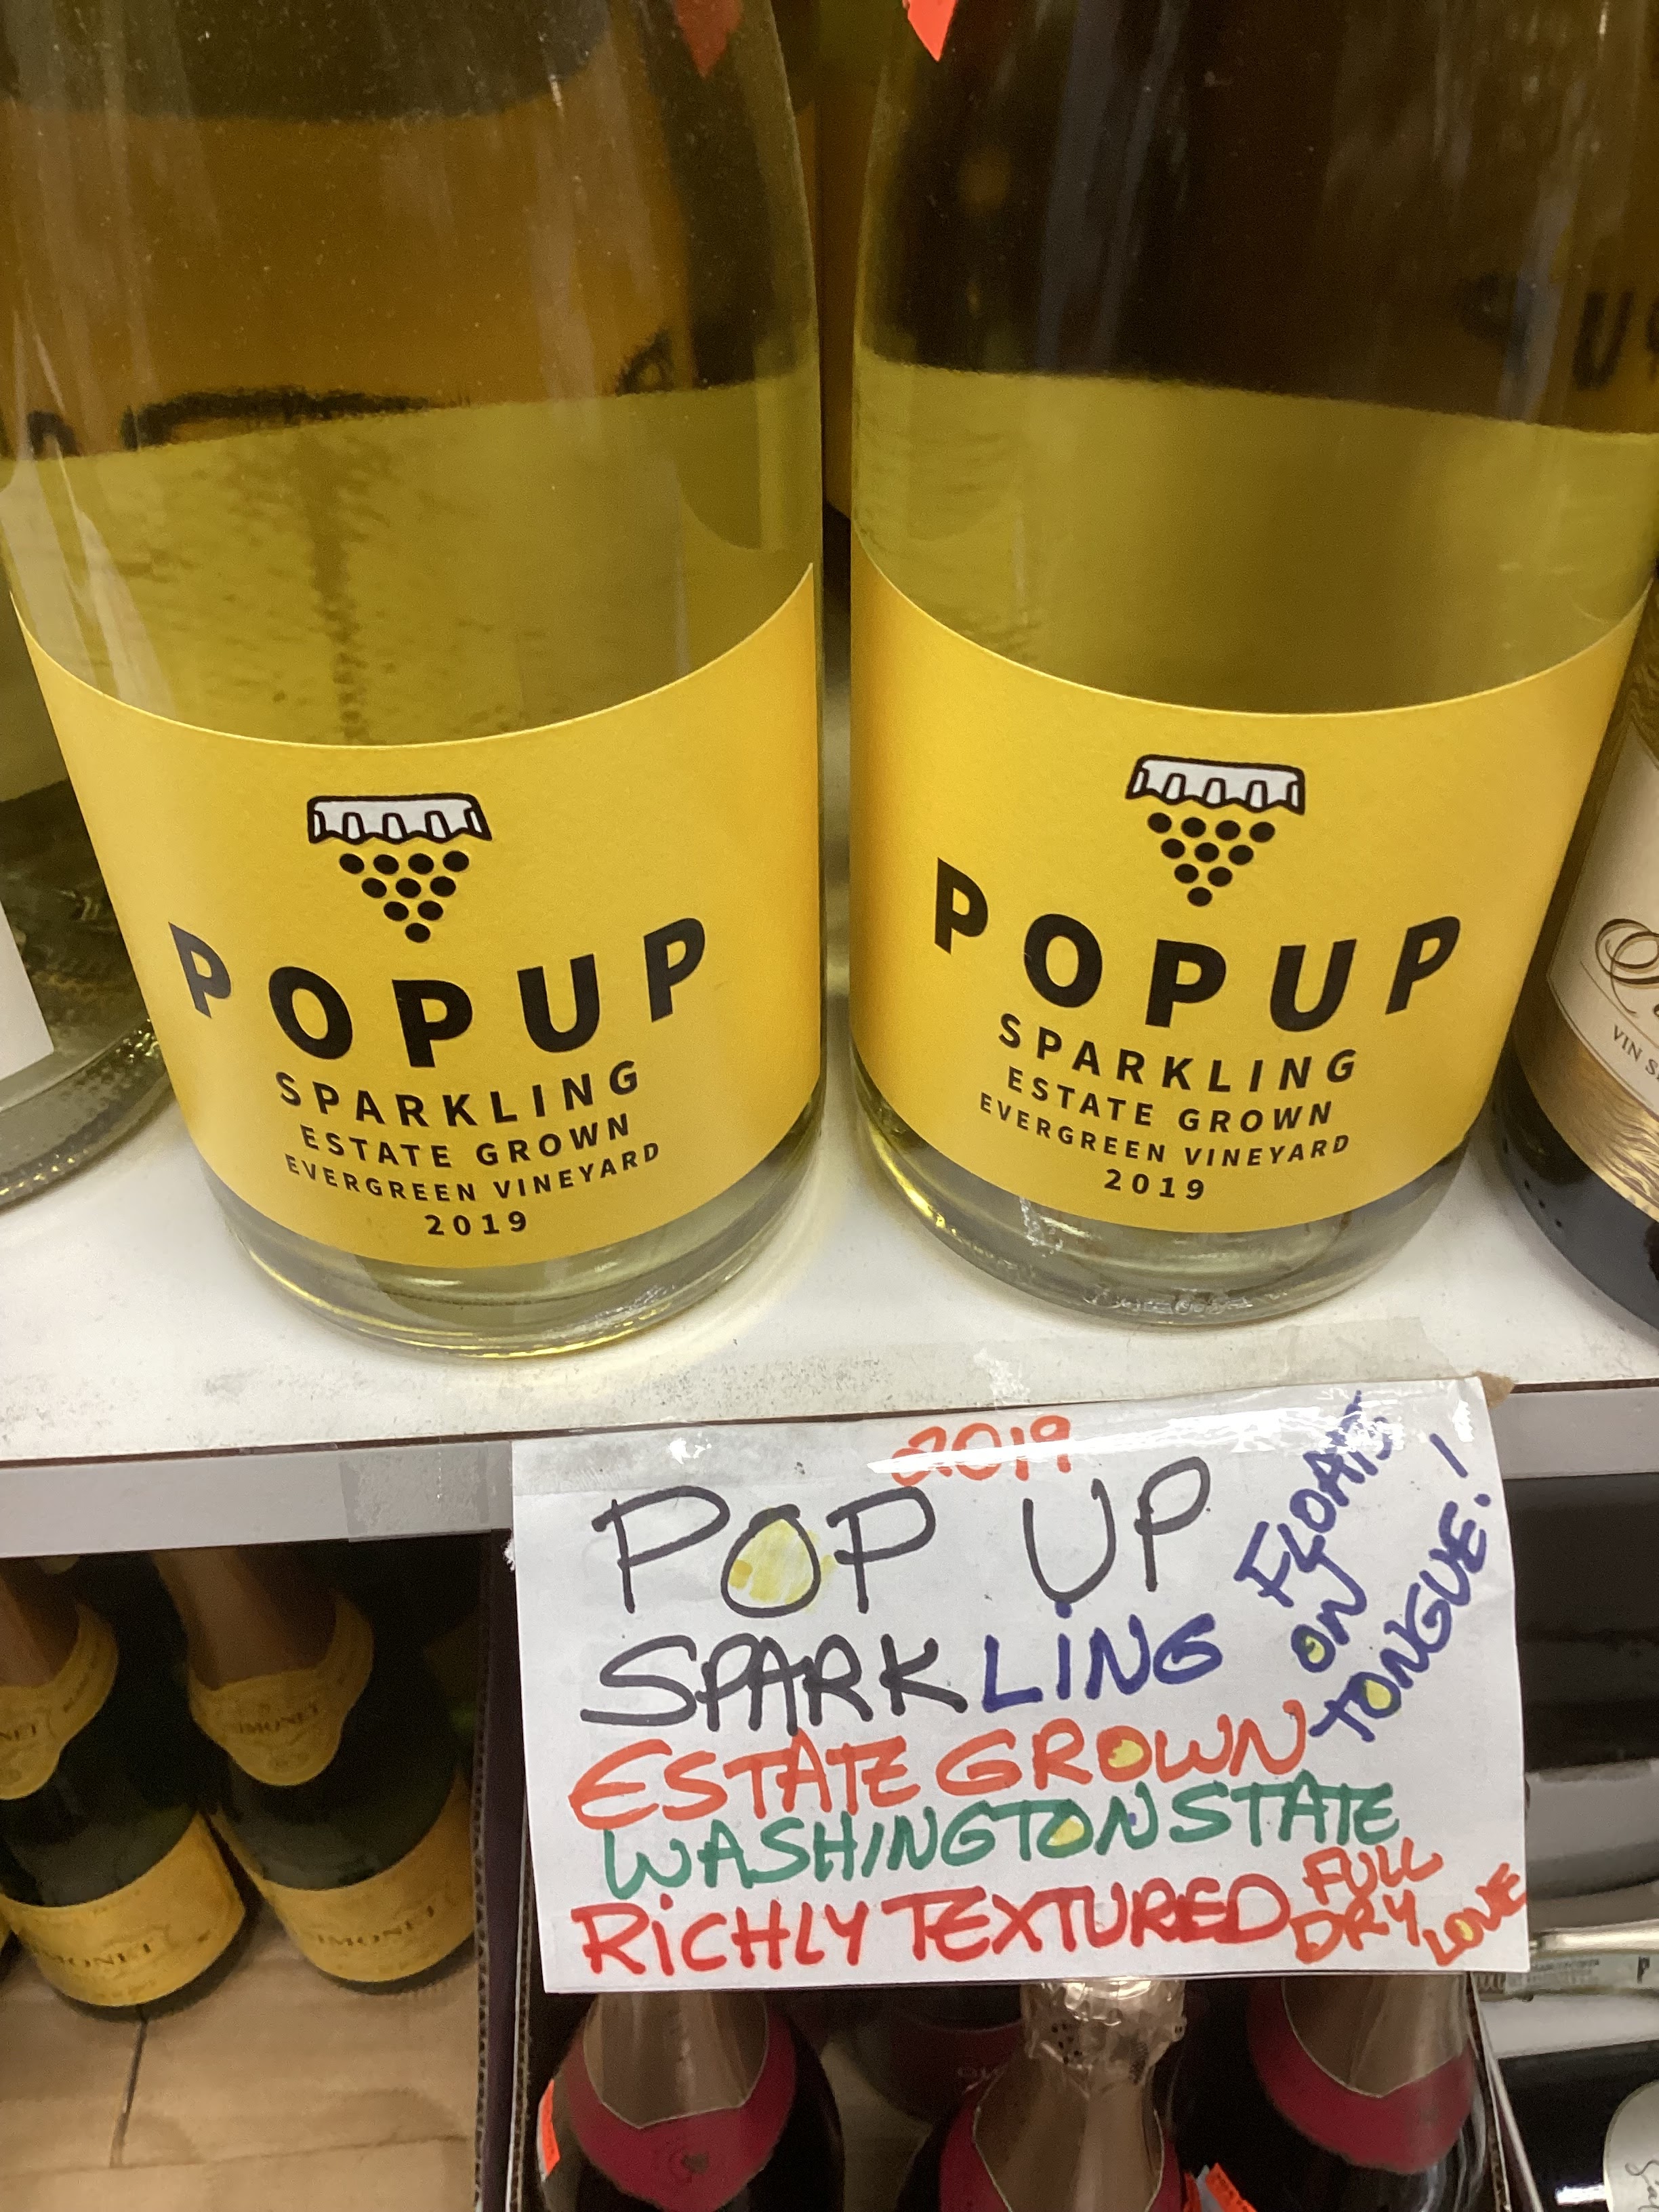 POPUP
SPARKLING
ESTATE GROWN
EVERGREEN VINEYARD
2019
POPUP
SPARKLING
ESTATE GROWN
EVERGREEN VINEYARD
2019
VIN
2019
POP UP
SPARKLING
ESTATE GROWN
WASHINGTON STATE
RICHLY TEXTURED
FULL
DRY
LOVE
FLOATS
ON
TONGUE!